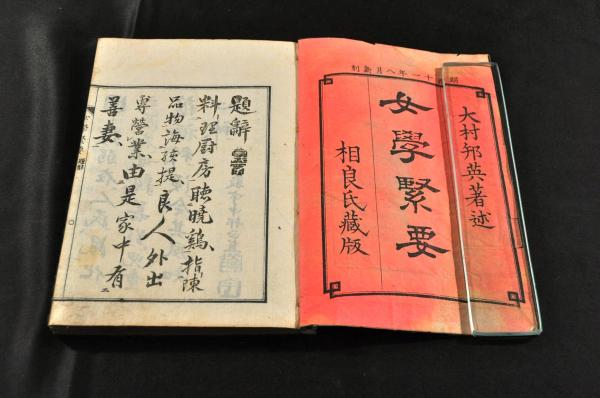 明治十一年八月新刻
大村邦英著述
女學緊要
相良氏藏版
題辭
料理厨房聽曉鷄指陳
品物誨孩提良人外出
專營業由是家中有
善妻